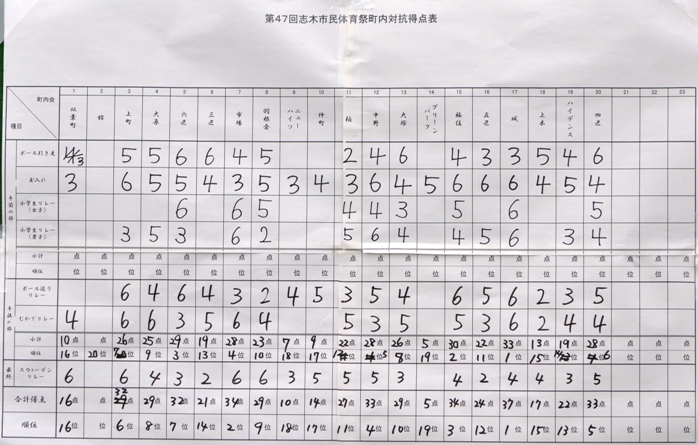 第47回志木市民体育祭町内対抗得点表
町内会 1 2 3 4 5 6 7 8 9 10 11 12 13 14 15 16 17 18 19 20 21 22 23
種目 双葉町 館 上町 大原 六道 三道 市場 羽根倉 ニューハイツ 仲町 中野 大塚 グリーンパーク 福住 五道 城 上木 ハイデンス 四道
ボール引き走 3 5 5 6 6 4 5 2 4 6 4 3 3 5 4 6
玉入れ 3 6 5 5 4 3 5 3 4 3 6 4 5 6 6 6 4 5 4
小学生リレー(女子) 6 6 5 4 4 3 5 6 5
小学生リレー(男子) 3 5 3 6 2 5 6 4 4 5 6 3 4
小計 点 点 点 点 点 点 点 点 点 点 点 点 点 点 点 点 点 点 点 点 点 点 点
順位 位 位 位 位 位 位 位 位 位 位 位 位 位 位 位 位 位 位 位 位 位 位 位
ボール送りリレー 6 4 6 4 3 2 4 5 3 5 4 6 5 6 2 3 5
むかでリレー 4 6 6 3 5 6 4 5 3 5 5 3 6 2 4 4
小計 10点 点 26点 25点 29点 19点 28点 23点 7点 9点 22点 28点 26点 5点 30点 22点 33点 13点 19点 28点 点 点 点
順位 16位 20位 位 9位 3位 13位 4位 10位 18位 17位 位 5位 8位 19位 2位 11位 1位 15位 位 6位 位 位 位
スウェーデンリレー 6 6 4 3 2 6 6 3 5 5 5 3 4 2 4 4 3 5
合計得点 16点 点 32点 29点 32点 21点 34点 29点 10点 14点 27点 33点 29点 5点 34点 24点 37点 17点 22点 33点 点 点 点
順位 16位 位 6位 8位 7位 14位 2位 9位 18位 17位 11位 4位 10位 19位 3位 12位 1位 15位 13位 5位 位 位 位